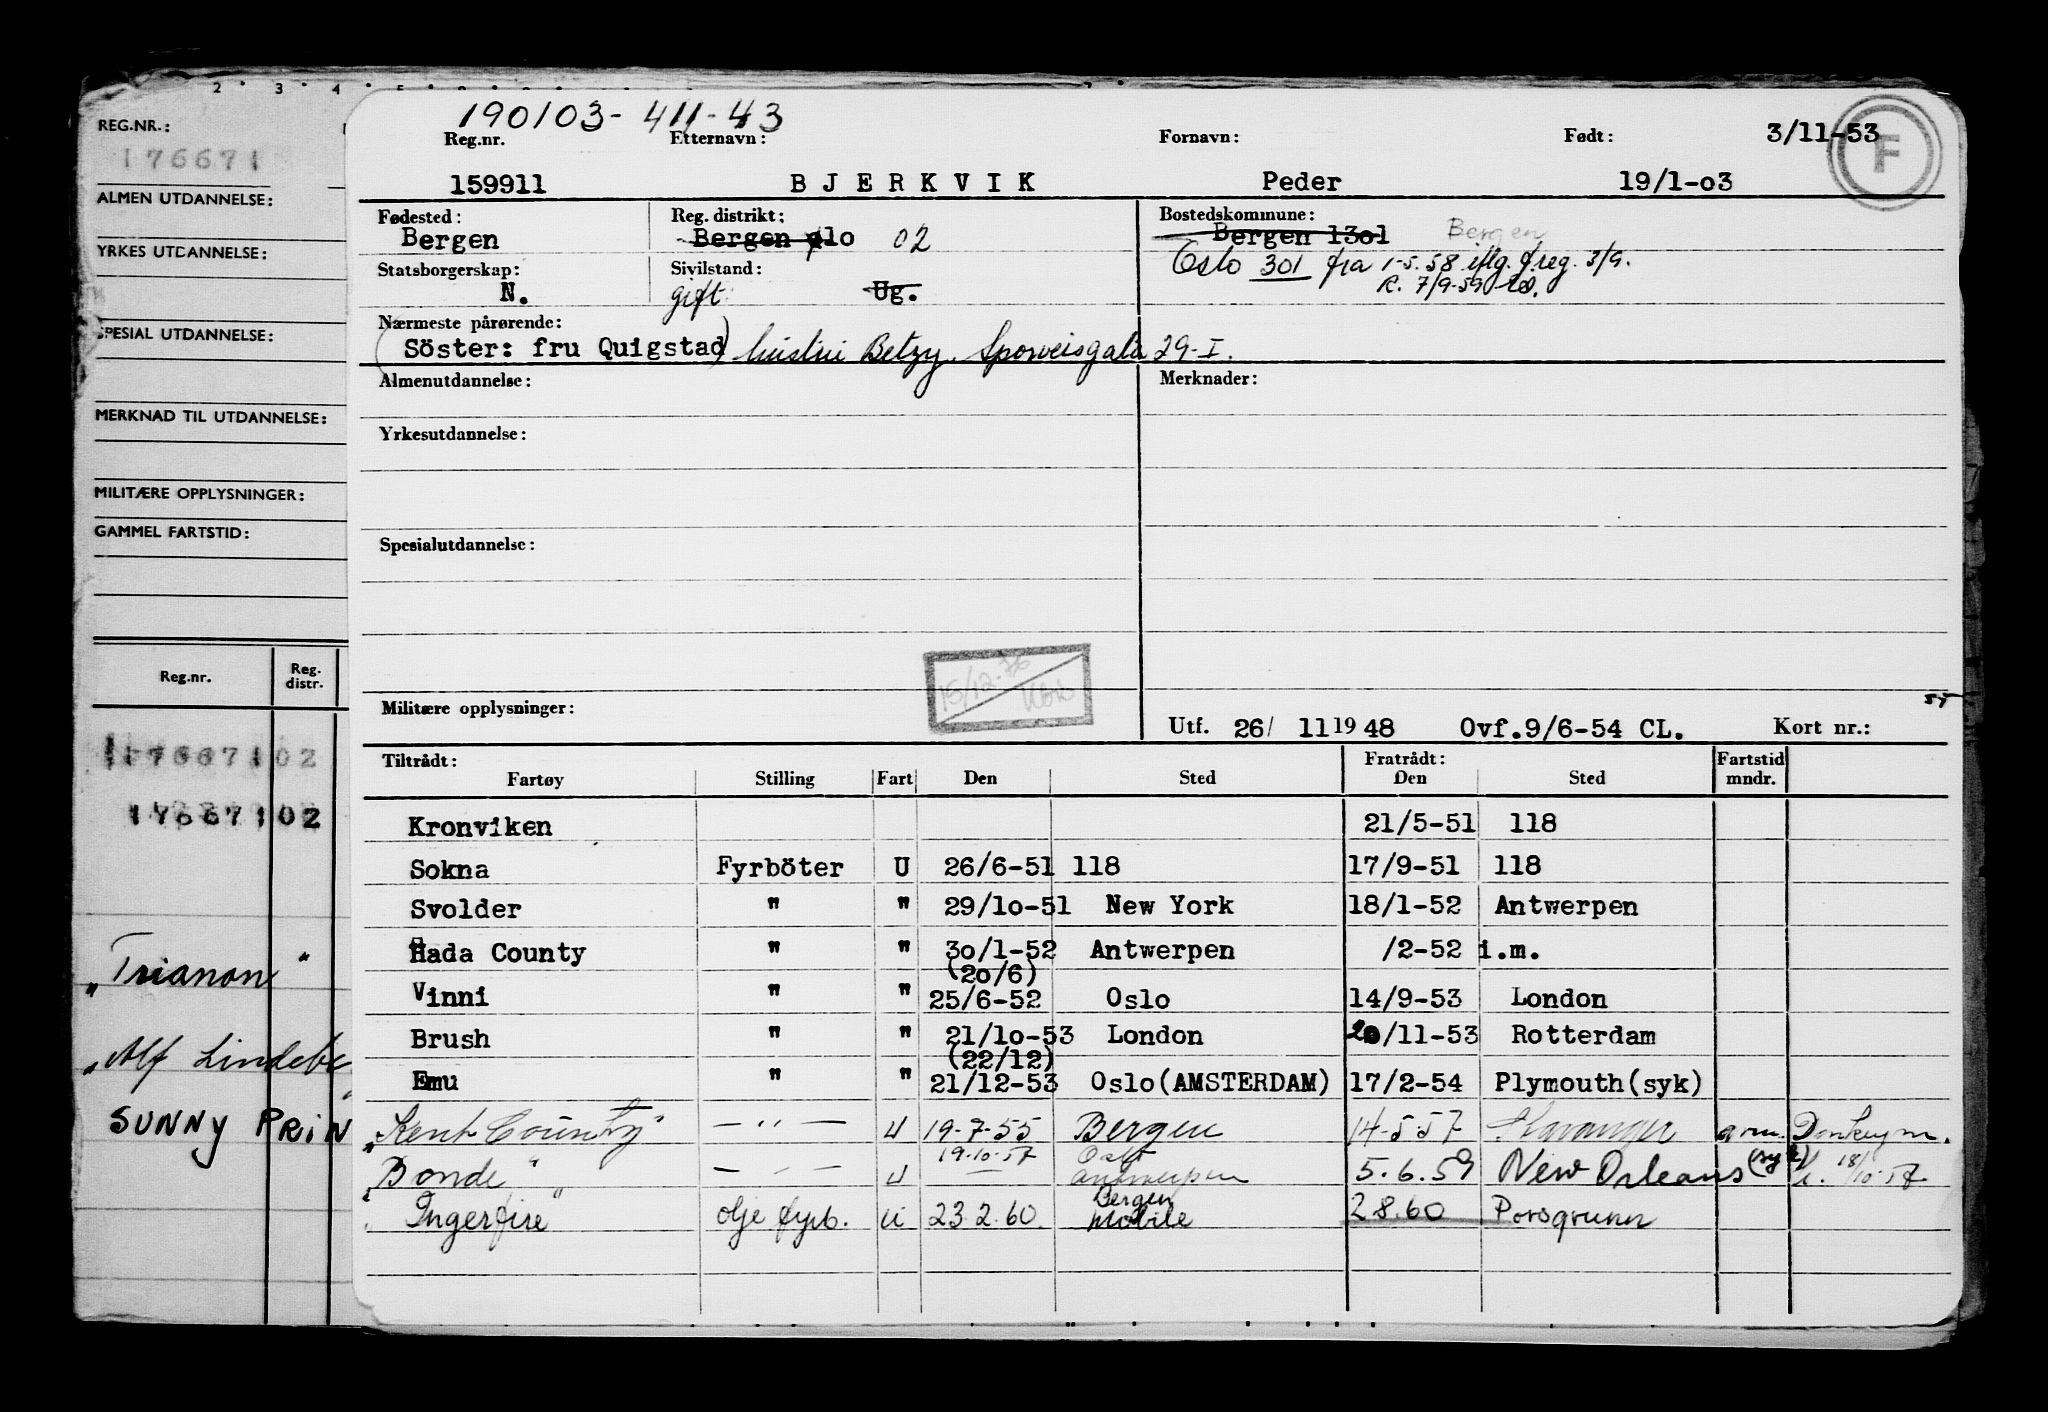 2 . 3 . 4 . 5
REG.NR.:
176671
ALMEN UTDANNELSE:
YRKES UTDANNELSE:
SPESIAL UTDANNELSE:
MERKNAD TIL UTDANNELSE:
MILITÆRE OPPLYSNINGER:
GAMMEL FARTSTID:
Reg.nr. Reg. distr.
17667102
17667102
"Trianon"
"Alf Lindebe
SUNNY PRIN
190103-411-43
Reg.nr. Etternavn: Fornavn: Født: 3/11-53
F
159911 BJERKVIK Peder 19/1-o3
Fødested: Reg. distrikt: Bostedskommune:
Bergen Bergen ølo 02 Bergen 13o1 Bergen
Oslo 301 fra 1-5.58 iflg. freg. 3/9.
Statsborgerskap: Sivilstand: R. 7/9-59
N. gift Ug.
Nærmeste pårørende:
(Söster: fru Quigstad) Betzy. Sporveisgata 29-I.
Almenutdannelse: Merknader:
Yrkesutdannelse:
Spesialutdannelse:
15/12-76
Militære opplysninger: Utf. 26/ 11 19 48 Ovf.9/6-54 CL. Kort nr.:
Tiltrådt: Fratrådt: Fartstid
Fartøy Stilling Fart Den Sted Den Sted mndr.
Kronviken 21/5-51 118
Sokna Fyrböter U 26/6-51 118 17/9-51 118
Svolder " " 29/1o-51 New York 18/1-52 Antwerpen
Hada County " " 3o/1-52 Antwerpen /2-52 i.m.
(2o/6)
Vinni " " 25/6-52 Oslo 14/9-53 London
Brush " " 21/1o-53 London 20/11-53 Rotterdam
(22/12)
Emu " " 21/12-53 Oslo(AMSTERDAM) 17/2-54 Plymouth(syk)
"Kent County" — " — U 19-7-55 Bergen 14-5 57 Stavanger Donkeym.
19.10.57 Oslo
"Bonde" — " — U — Antwerpen 5.6.59 New Orleans (syk) 18/10-57
Bergen
"Ingerfire" olje fyrb. U 23.2.60. Mobile 2 8.60 Porsgrunn